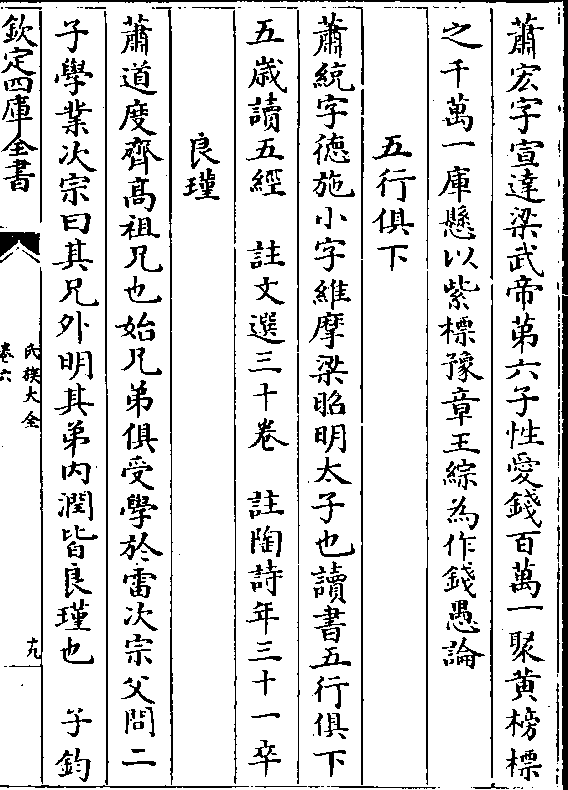 蕭宏字宣達梁武帝第六子性愛錢百萬一聚黄榜標
之千萬一庫懸以紫標豫章王綜為作錢愚論
五行俱下
蕭統字德施小字維摩梁昭明太子也讀書五行俱下
五歲讀五經　註文選三十卷　註陶詩年三十一卒
良瑾
蕭道度齊高祖兄也始兄弟俱受學於雷次宗父問二
子學業次宗曰其兄外明其弟内潤皆良瑾也　子鈞
欽定四庫全書
氏族大全
卷六
十九